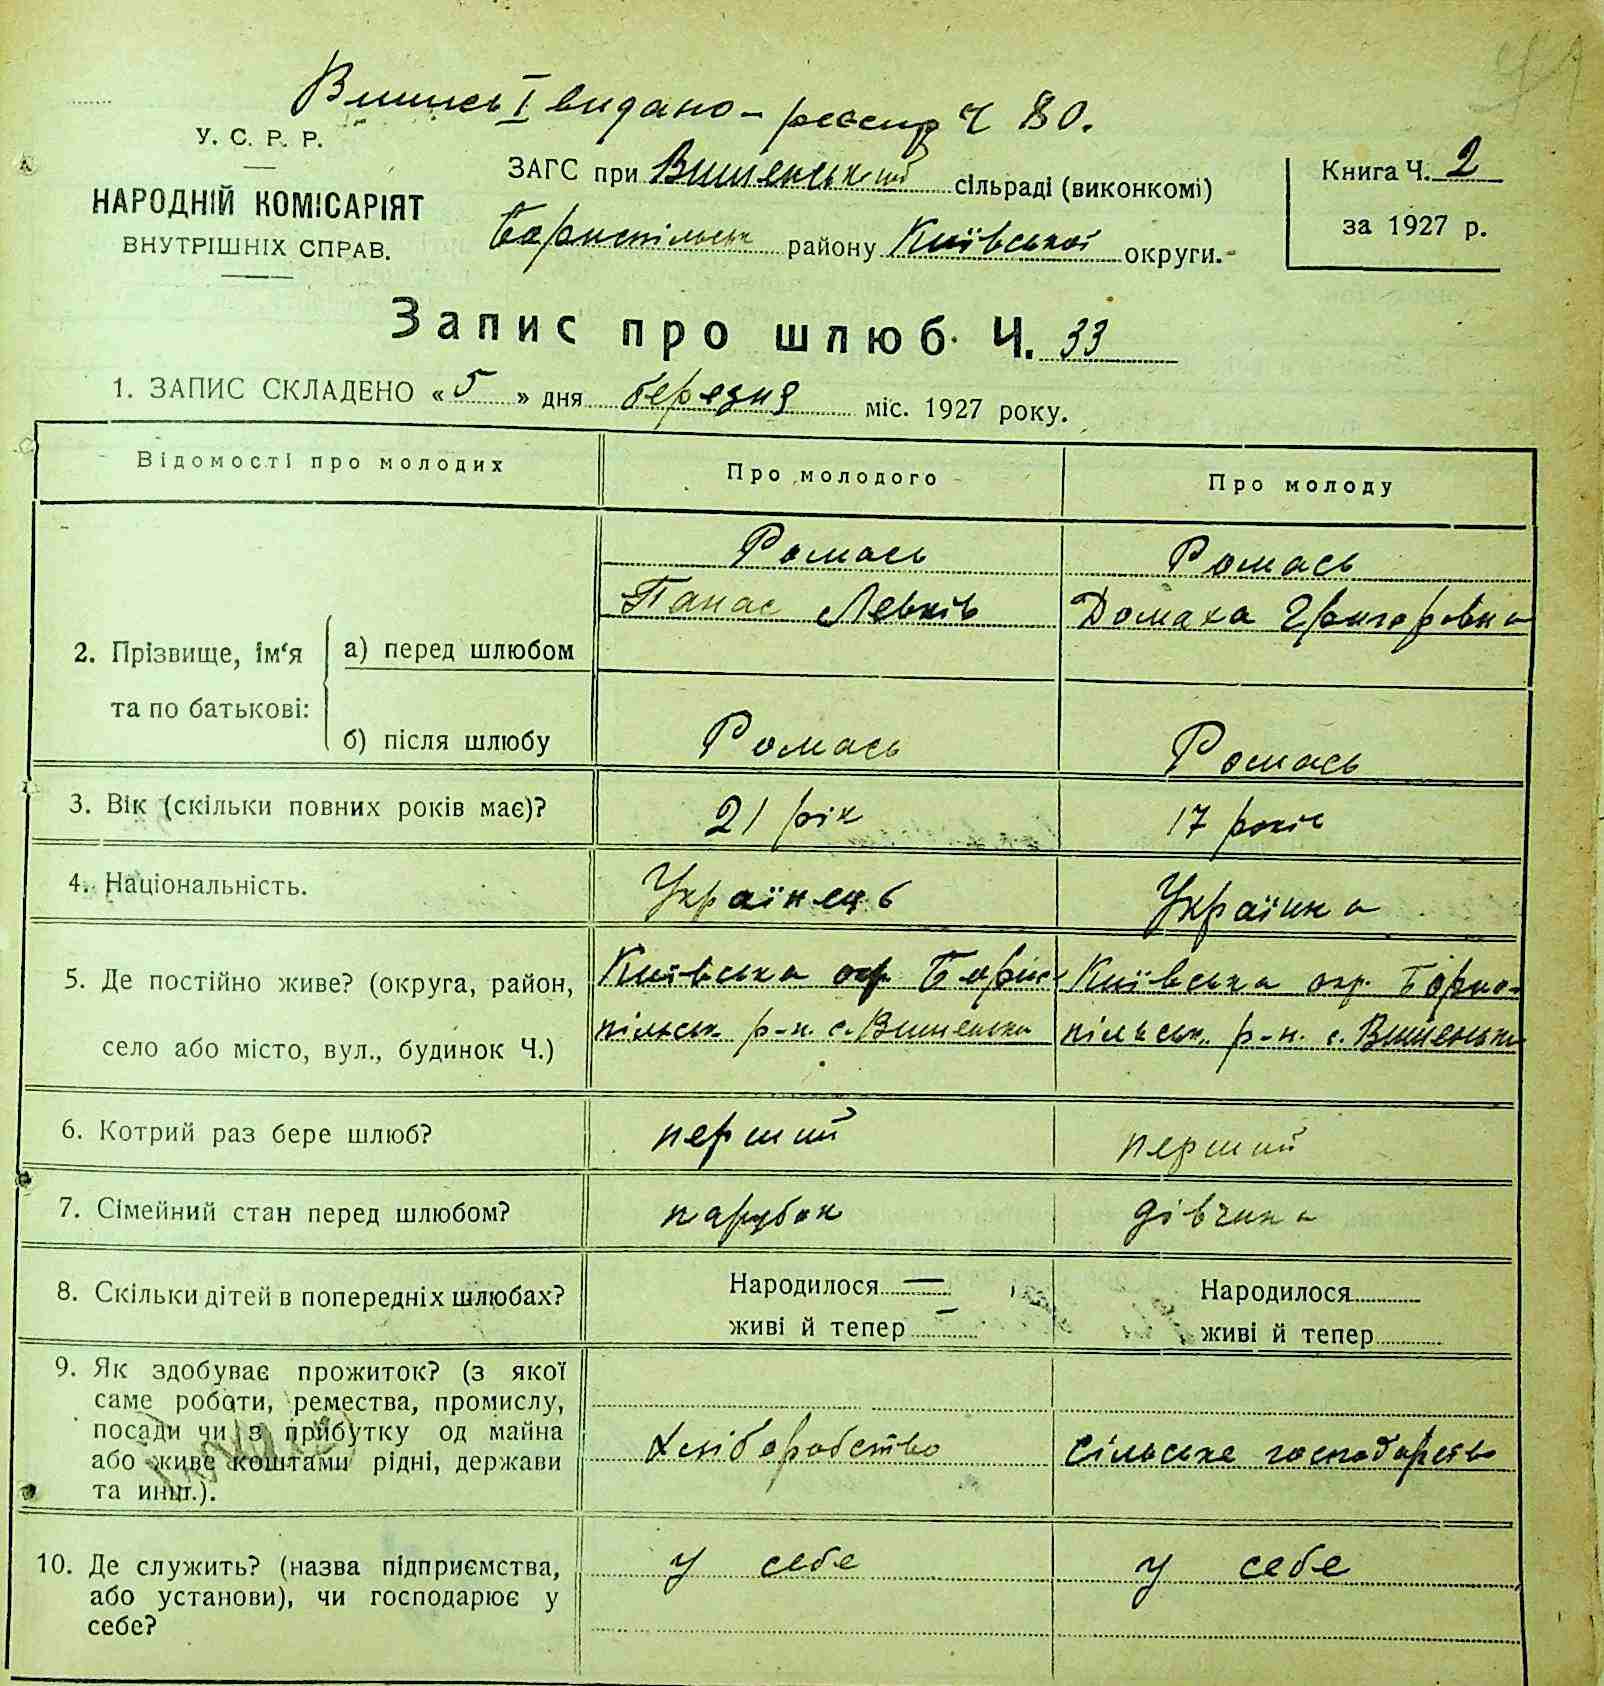 Випись І видано – реєстр Ч 80.
У. С. Р. Р.
НАРОДНІЙ КОМІСАРІЯТ
ВНУТРІШНІХ СПРАВ.
ЗАГС при Вишенській сільраді (виконкомі)
Бориспільськ району Київської округи.
Книга Ч. 2
за 1927 р.
Запис про шлюб Ч. 33
1. ЗАПИС СКЛАДЕНО « 5 » дня березня міс. 1927 року.
Відомості про молодих
Про молодого
Про молоду
2. Прізвище, ім'я
та по батькові:
а) перед шлюбом
Ромась
Панас Левків
Ромась
Домаха Григоровна
б) після шлюбу
Ромась
Ромась
3. Вік (скільки повних років має)?
21 рік
17 років
4. Національність.
Українець
Українка
5. Де постійно живе? (округа, район,
село або місто, вул., будинок Ч.)
Київська окр. Борис-
пільськ р-н. с. Вишеньки
Київська окр. Борис-
пільськ. р-н. с. Вишеньки
6. Котрий раз бере шлюб?
перший
перший
7. Сімейний стан перед шлюбом?
парубок
дівчина
8. Скільки дітей в попередніх шлюбах?
Народилося —
живі й тепер –
Народилося
живі й тепер
9. Як здобуває прожиток? (з якої
саме роботи, ремества, промислу,
посади чи з прибутку од майна
або живе коштами рідні, держави
та инш.).
Хліборобство
Сільське господарство
10. Де служить? (назва підприємства,
або установи), чи господарює у
себе?
у себе
у себе